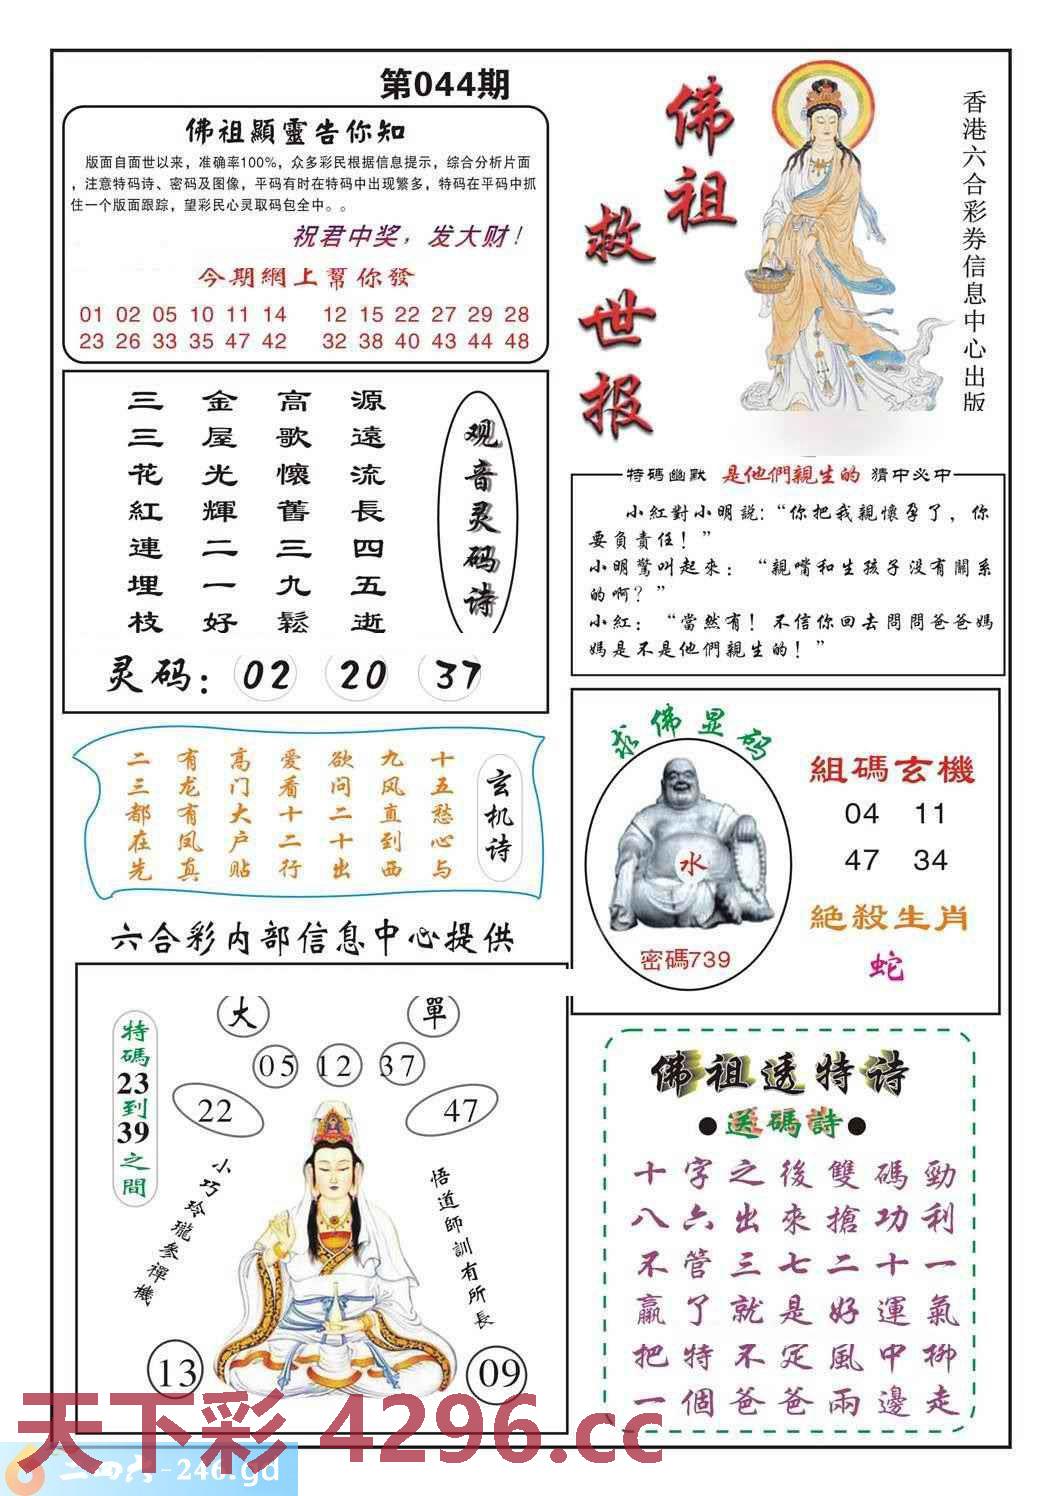 第044期
佛祖顯靈告你知
版面自面世以来，准确率100%，众多彩民根据信息提示，综合分析片面
，注意特码诗、密码及图像，平码有时在特码中出现繁多，特码在平码中抓
住一个版面跟踪，望彩民心灵取码包全中。。
祝君中奖，发大财！
今期網上幫你發
01 02 05 10 11 14 12 15 22 27 29 28
23 26 33 35 47 42 32 38 40 43 44 48
佛祖
救世报
香港六合彩券信息中心出版
观音灵码诗
源遠流長四五逝
高歌懷舊三九鬆
金屋光輝二一好
三三花紅連埋枝
灵码：02 20 37
特碼幽默 是他們親生的 猜中必中
小紅對小明説：“你把我親懷孕了，你
要負責任！”
小明驚叫起來：“親嘴和生孩子没有關系
的啊？”
小紅：“當然有！不信你回去問問爸爸媽
媽是不是他們親生的！”
玄机诗
十五愁心与
九风直到西
欲问二十出
爱看十二行
高门大户贴
有龙有凤真
二三都在先
求佛显码
水
密碼739
組碼玄機
04 11
47 34
絕殺生肖
蛇
六合彩内部信息中心提供
大 單
05 12 37
22 47
特碼23到39之間
小巧玲瓏參禪機
悟道師訓有所長
13 09
佛祖透特诗
●送碼詩●
十字之後雙碼勁
八六出來搶功利
不管三七二十一
贏了就是好運氣
把特不定風中柳
一個爸爸兩邊走
天下彩 4296.cc
二四六-246.gd